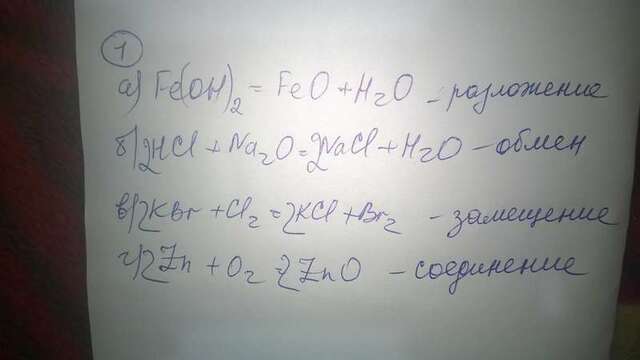 1
а) Fe(OH)₂ = FeO + H₂O – разложение
б) 2HCl + Na₂O = 2NaCl + H₂O – обмен
в) 2KBr + Cl₂ = 2KCl + Br₂ – замещение
г) 2Zn + O₂ = 2ZnO – соединение